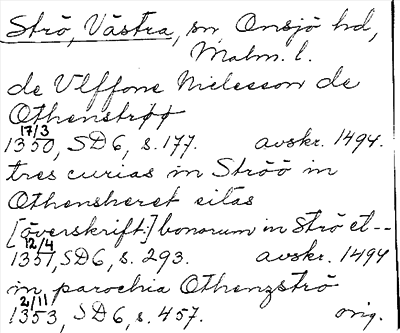 Strö, Västra, sn, Onsjö hd,
Malm. l.
de Vlffone Nielesson de
Othenstrøø
17/3
1350, SD6, s. 177. avskr. 1494.
tres curias in Ströö in
Othensheret sitas
[överskrift:] bonorum in Strö et --
12/4
1351, SD6, s. 293. avskr. 1494
in parochia Othenzströ
2/11
1353, SD6, s. 457. orig.